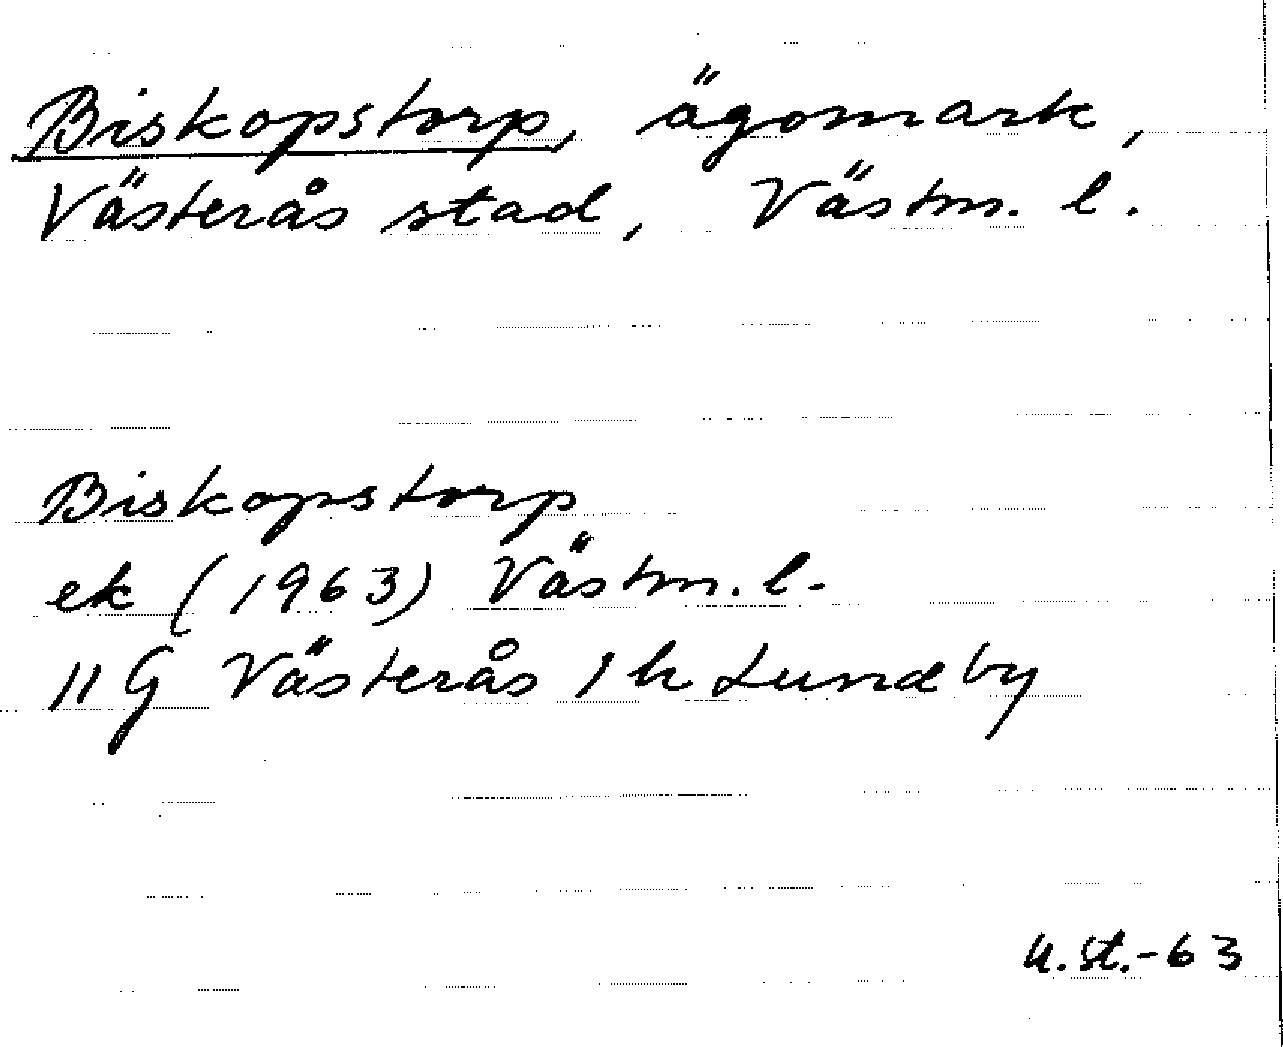 Biskopstorp, ägomark,
Västerås stad, Västm. l.
Biskopstorp
ek (1963) Västm. l.
11 G Västerås 1 h Lundby
U. St. -63